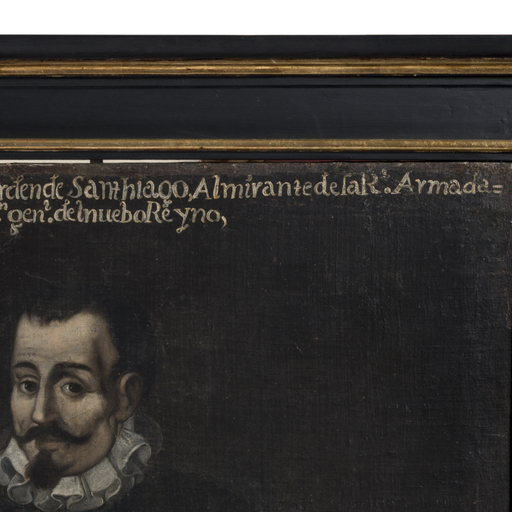 rden de Santhiago, Almirante de la Rˡ. Armada=
rˀ. genˡ. del nuebo Reyno,